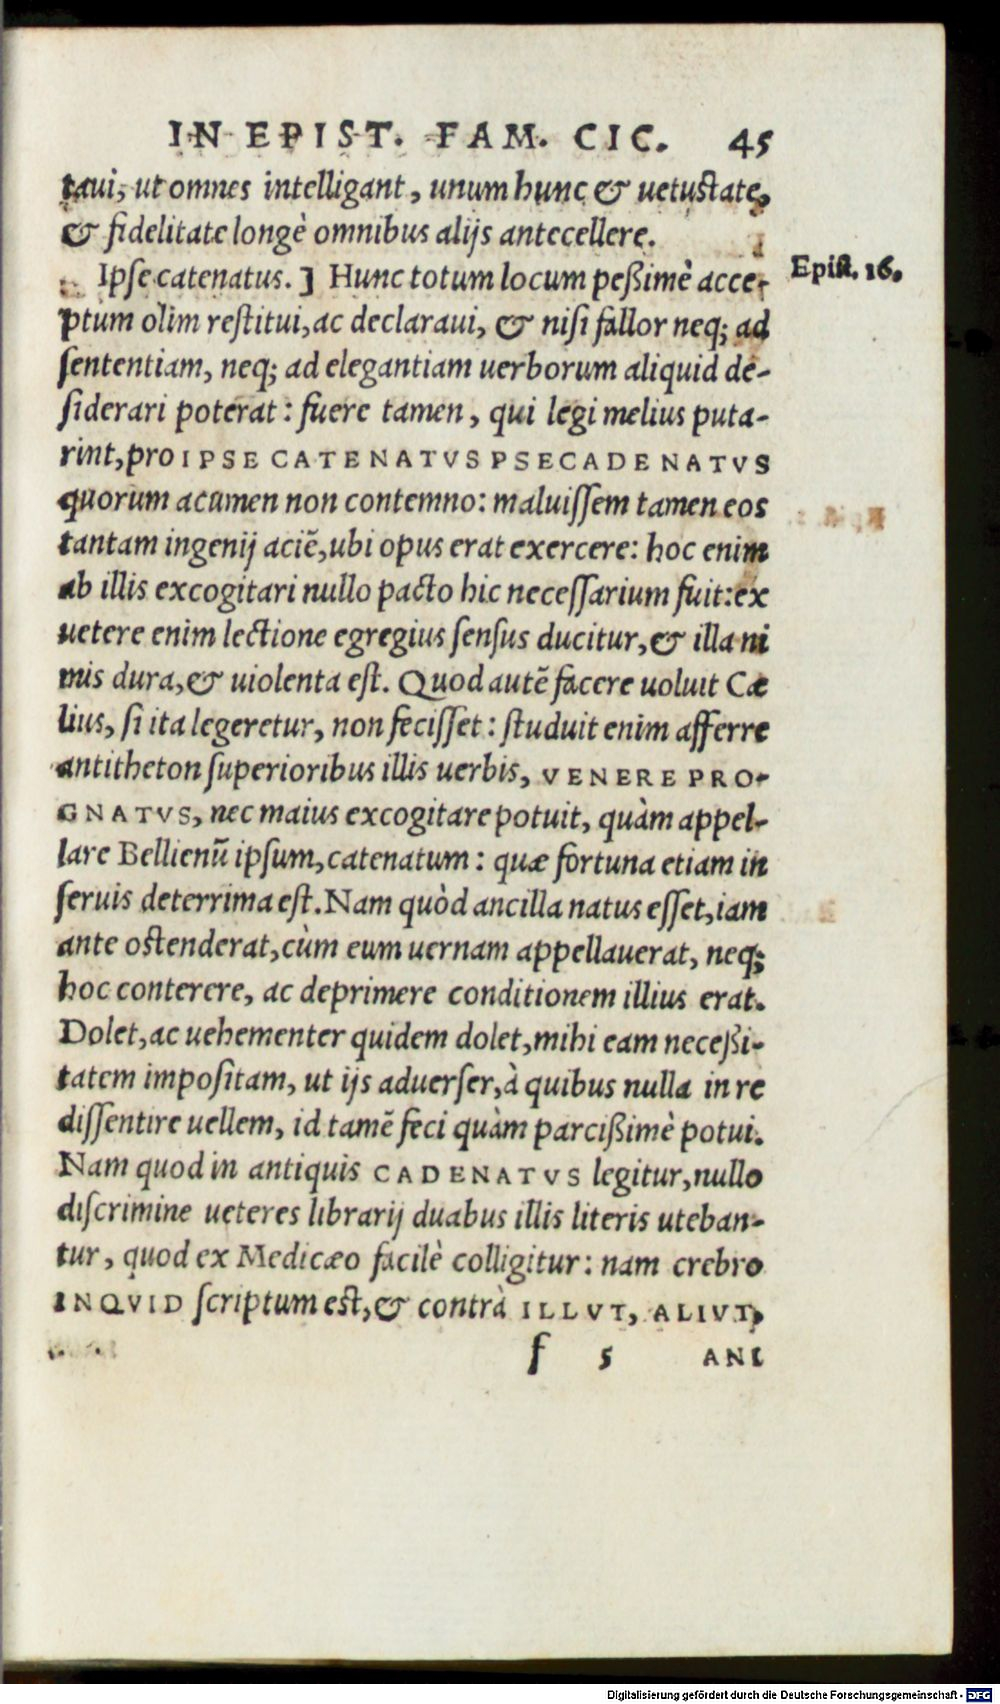 IN EPIST. FAM. CIC. 45
taui, ut omnes intelligant, unum hunc & uetustate,
& fidelitate longè omnibus alijs antecellere.
Ipse catenatus.] Hunc totum locum peßimè acce-
Epist. 16.
ptum olim restitui, ac declaraui, & nisi fallor neq; ad
sententiam, neq; ad elegantiam uerborum aliquid de-
siderari poterat: fuere tamen, qui legi melius puta-
rint, pro IPSE CATENATVS PSECADE NATVS
quorum acumen non contemno: maluissem tamen eos
tantam ingenij aciē, ubi opus erat exercere: hoc enim
ab illis excogitari nullo pacto hic necessarium fuit: ex
uetere enim lectione egregius sensus ducitur, & illa ni
mis dura, & uiolenta est. Quod autē facere uoluit Cæ
lius, si ita legeretur, non fecisset: studuit enim afferre
antitheton superioribus illis uerbis, VENERE PRO-
GNATVS, nec maius excogitare potuit, quàm appel-
lare Bellienū ipsum, catenatum: quæ fortuna etiam in
seruis deterrima est. Nam quòd ancilla natus esset, iam
ante ostenderat, cùm eum uernam appellauerat, neq;
hoc conterere, ac deprimere conditionem illius erat.
Dolet, ac uehementer quidem dolet, mihi eam neceßi-
tatem impositam, ut ijs aduerser, à quibus nulla in re
dissentire uellem, id tamē feci quàm parcißimè potui.
Nam quod in antiquis CADENATVS legitur, nullo
discrimine ueteres librarij duabus illis literis uteban-
tur, quod ex Medicæo facilè colligitur: nam crebro
INQVID scriptum est, & contrà ILLVT, ALIVT,
f 5 ANI
Digitalisierung gefördert durch die Deutsche Forschungsgemeinschaft - DFG